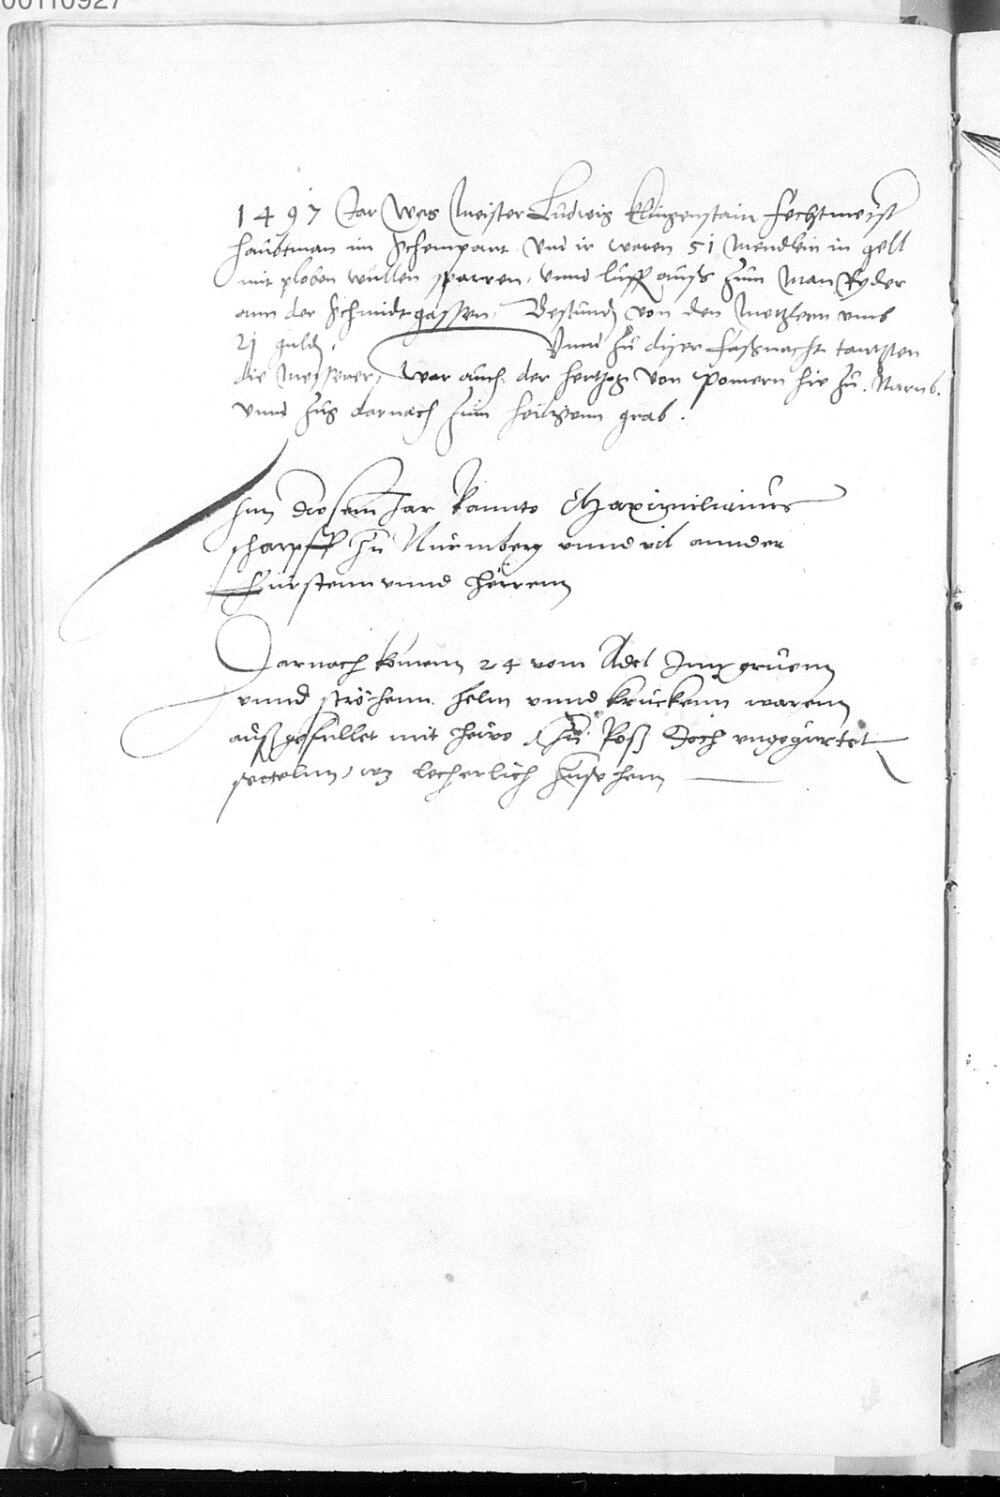 00110927
1497 Jar Was Meister Ludwig Klingenstain Fechtmeist
haubtman im Schempart Und ir waren 51 Mendlein in gell
mit ploben wullen sparren, vnnd luff auß zum Man Ryder
ann der Schmidtgassen, Bestundt von den Metzlern vmb
21 guld. Vnnd zu diser Faßnacht tantzten
die Messerer, War auch der Hertzog von Pomern hie zu Narnb.
vnnd zug darnach zum heiligenn grab.
Inn Diesem Jar kannte Maximilianus
scharpff zu Nurmberg vnnd vil annder
Furstenn vnnd herrenn
Darnach komenn 24 vom Adel Inn gruenn
vnnd ströhenn helm vnnd krückenn warenn
außgefullet mit heive zu Roß Doch vngegürtet
settelnn, wz lecherlich zusehenn